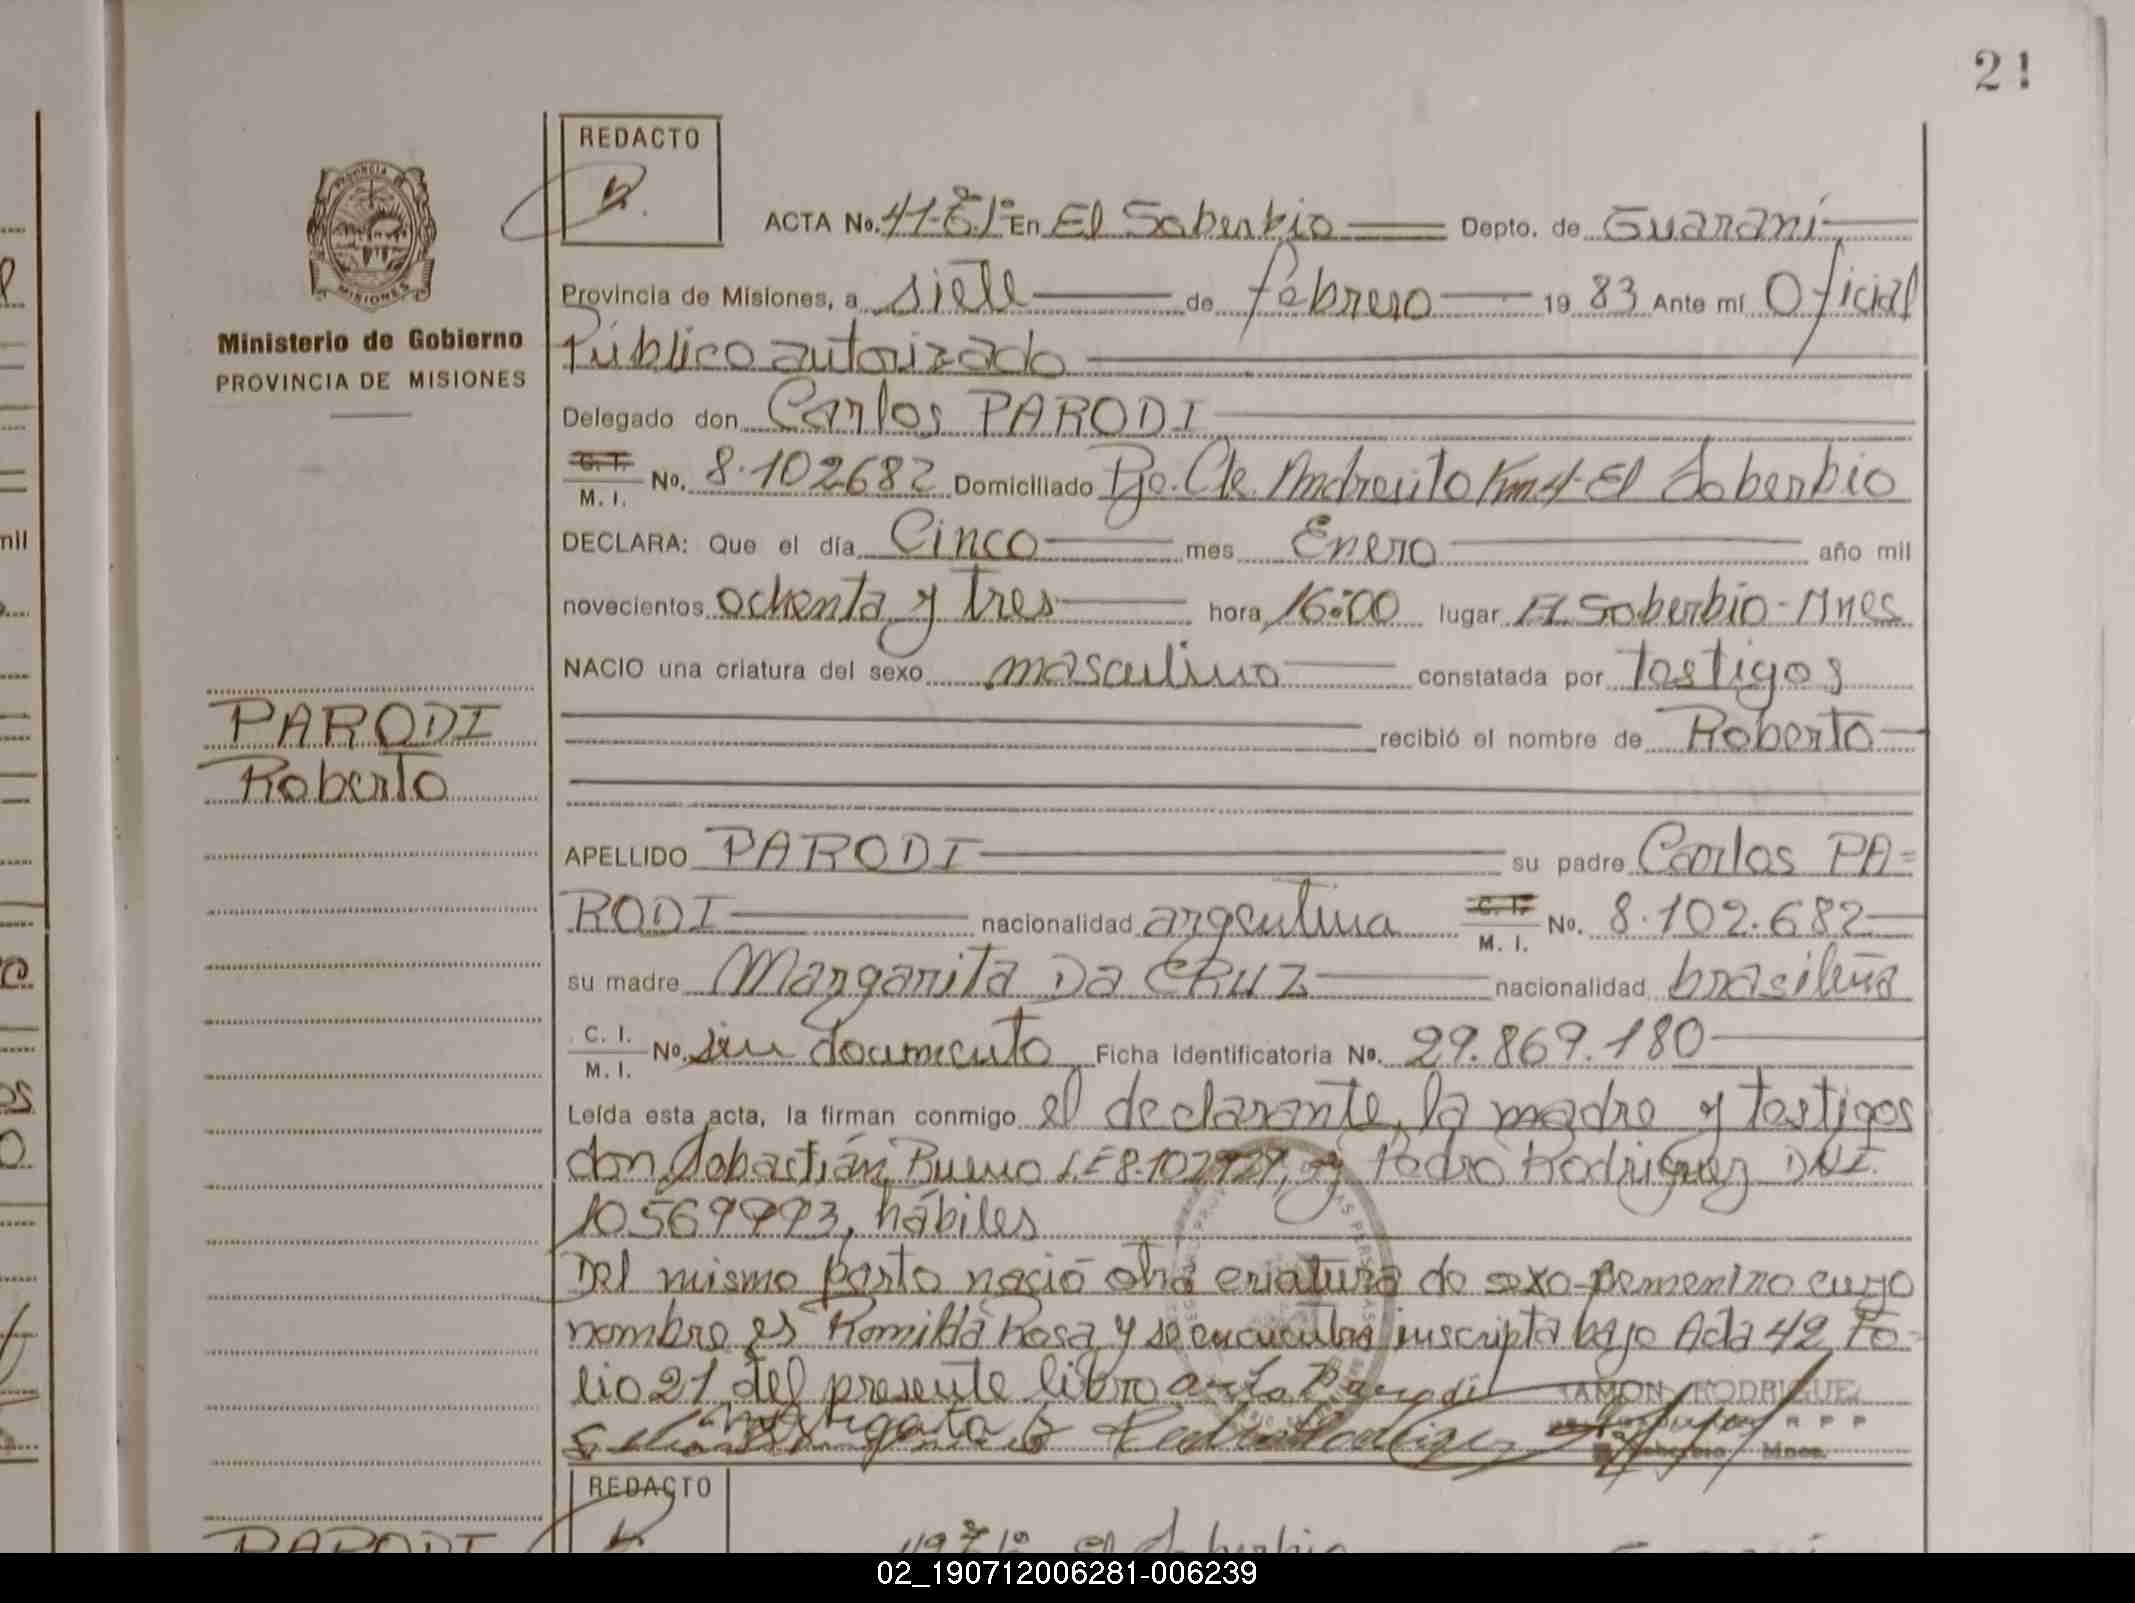 21
REDACTO
ACTA No. 41- En El Soberbio Depto. de Guaraní
Provincia de Misiones, a siete de febrero 19 83 Ante mí Oficial
Público autorizado
Ministerio de Gobierno
PROVINCIA DE MISIONES
Delegado don Carlos PARODI
C. I.
M. I. No. 8.102682 Domiciliado Pje. Cte. Andresito Km 4- El Soberbio
DECLARA: Que el día Cinco mes Enero año mil
novecientos ochenta y tres hora 16:00 lugar El Soberbio-Mnes
NACIO una criatura del sexo masculino constatada por testigos
recibió el nombre de Roberto
PARODI
Roberto
APELLIDO PARODI su padre Carlos PA=
RODI nacionalidad argentina C. I. M. I. No. 8.102.682
su madre Margarita Da CRUZ nacionalidad brasileña
C. I.
M. I. No. sin documento Ficha Identificatoria No. 29.869.180
Leída esta acta, la firman conmigo el declarante, la madre y testigos
don Sebastián Bueno L.E 8.102929, y Pedro Rodriguez DNI.
10569993, hábiles
Del mismo parto nació otra criatura de sexo femenino cuyo
nombre es Romilda Rosa y se encuentra inscripta bajo Acta 42 Fo-
lio 21 del presente libro
RAMON RODRIGUEZ
R P P
Soberbio Mnes.
REDACTO
PARODI
El Soberbio
02_190712006281-006239